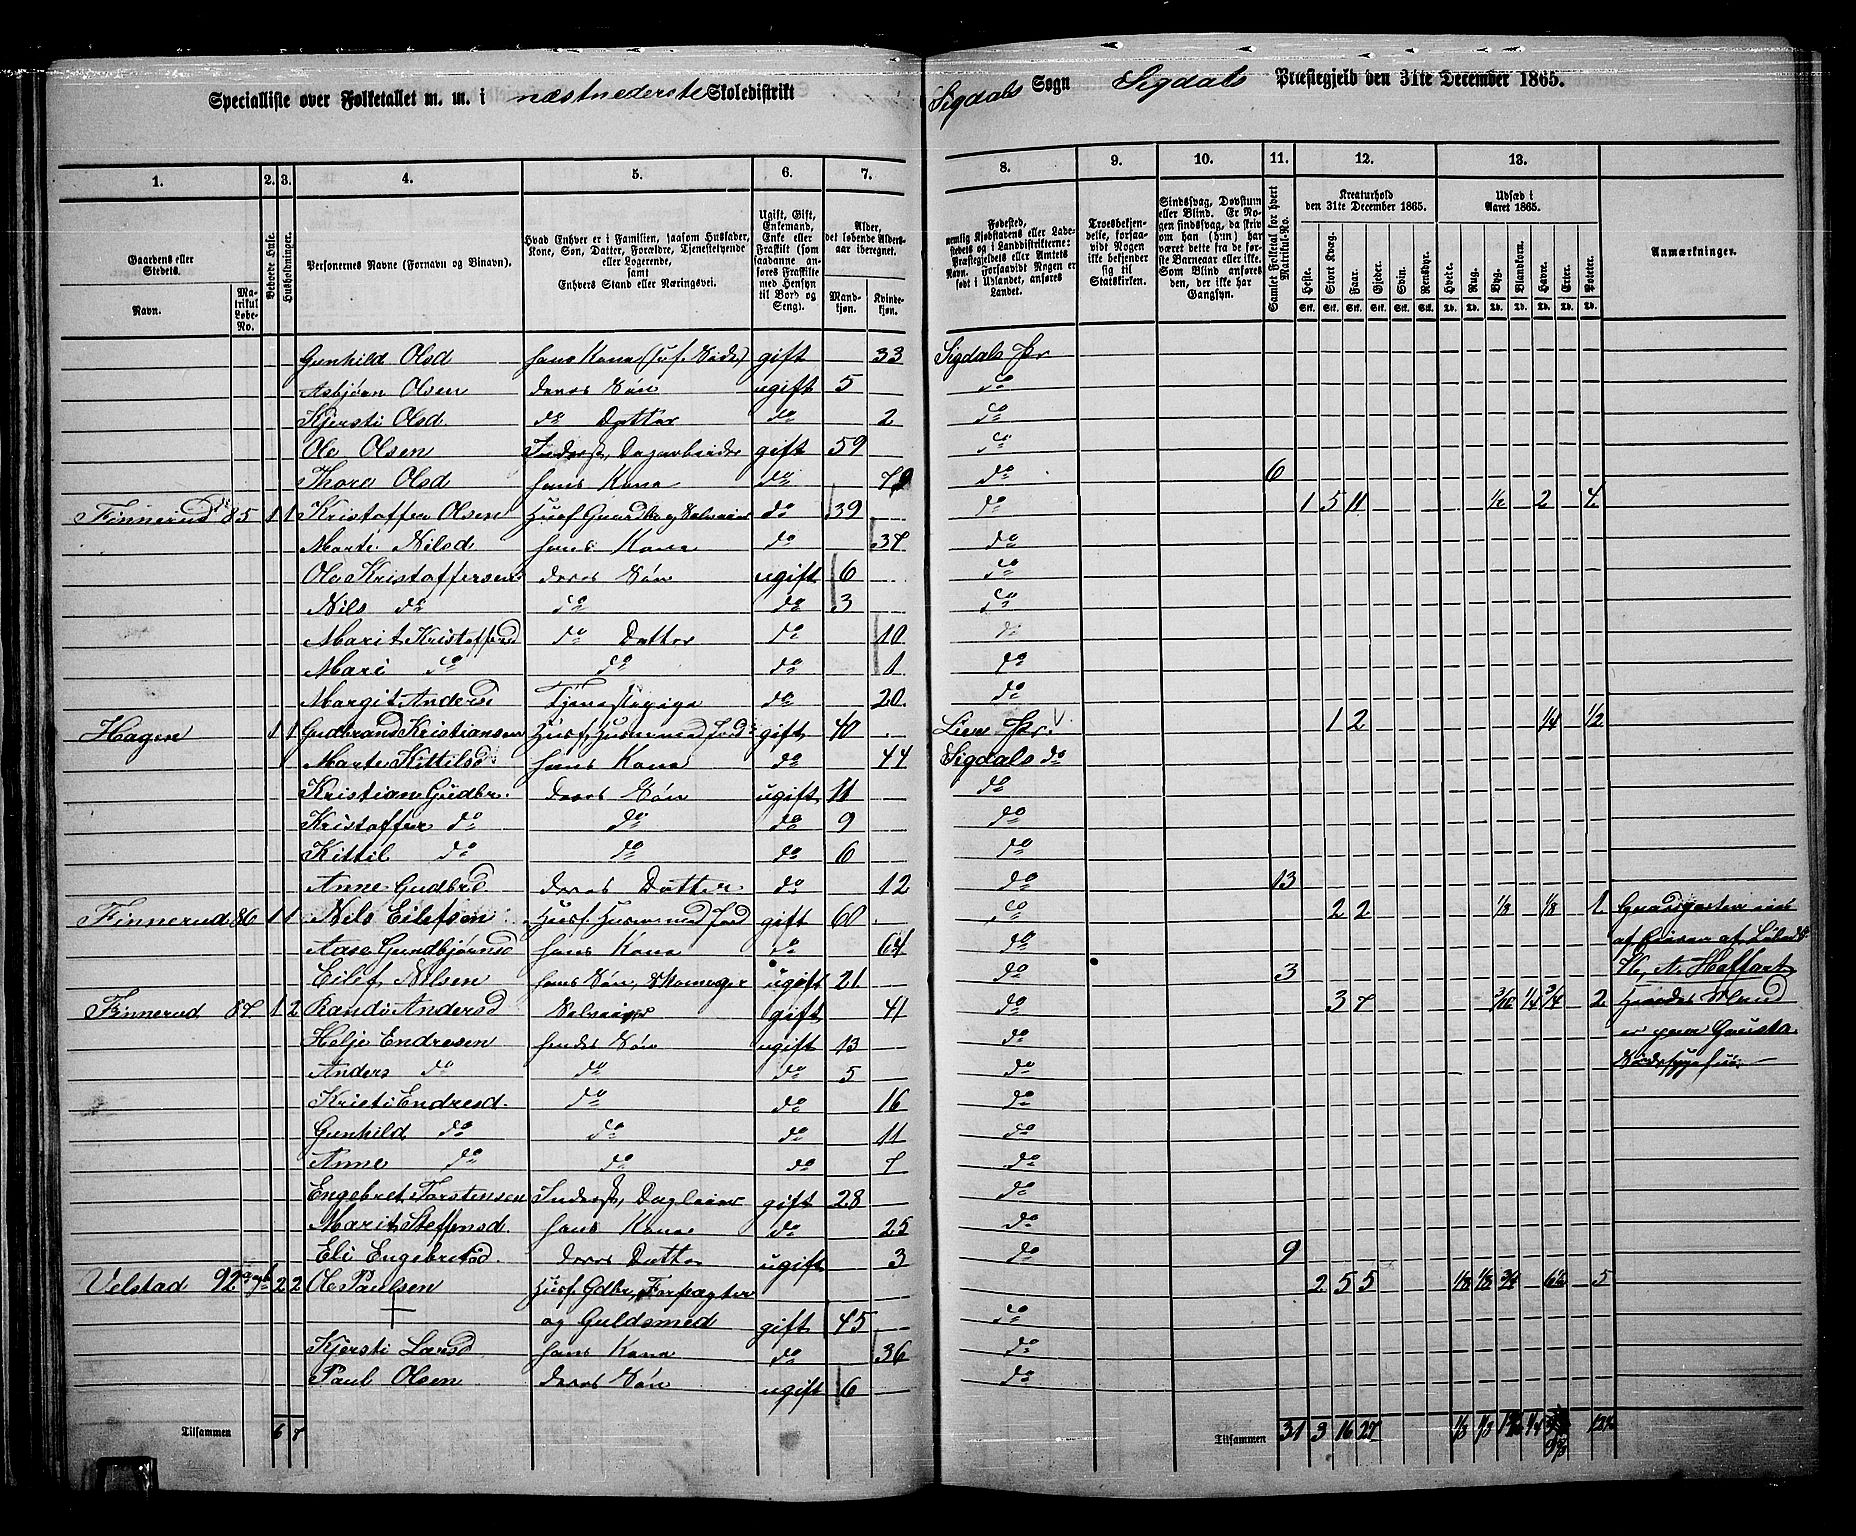 Specialliste over Folketallet m. m. i næstnederste Skoledistrikt Sigdals Sogn Sigdals Præstegjeld den 31te December 1865.
1. 2. 3. 4. 5. 6. 7. 8. 9. 10. 11. 12. 13.
Gaardens eller Stedets. Navn. Matrikul Løbe-No. Beboede Huse. Husholdninger. Personernes Navne (Fornavn og Binavn). Hvad Enhver er i Familien, saasom Husfader, Kone, Søn, Datter, Forældre, Tjenestetyende eller Logerende, samt Enhvers Stand eller Næringsvei. Ugift, Gift, Enkemand, Enke eller Fraskilt (som saadanne anføres Fraskilte med Hensyn til Bord og Seng). Alder, det løbende Alders-aar iberegnet. Mandkjøn. Kvindekjøn.
Fødested, nemlig Kjøbstadens eller Ladestedets og i Landdistrikterne: Præstegjeldets eller Amtets Navn. Forsaavidt Nogen er født i Udlandet, anføres Landet. Troesbekjendelse, forsaavidt Nogen ikke bekjender sig til Statskirken. Sindssvag, Døvstum eller Blind. Er Nogen sindssvag, da skriv om han (hun) har været dette fra de første Barneaar eller ikke. Som Blind anføres den, der ikke har Gangsyn. Samlet Folketal for hvert Matrikul-No. Kreaturhold den 31te December 1865. Heste. Stort Kvæg. Faar. Gjeder. Svin. Rensdyr. Udsæd i Aaret 1865. Hvede. Rug. Byg. Blandkorn. Havre. Erter. Poteter. Anmærkninger.
Gunhild Olsd hans Kone gift 33 Sigdals Pr
Asbjørn Olsen deres Søn ugift 5 do
Kjersti Olsd do Datter do 2 do
Ole Olsen Inderst, Dagarbeider gift 59 do
Thore Olsd hans Kone do do 6
Finnerud 85 1 1 Kristoffer Olsen Husf Gaardbr og Selveier do 39 do 1 5 11 1/2 2 4
Marte Nilsd hans Kone do 37 do
Ole Kristoffersen deres Søn ugift 6 do
Nils do do do 3 do
Marit Kristoffersd do Datter do 10 do
Mari do do do 1 do
Margit Andersd Tjenestepige do 20 do
Hagen 1 1 Gudbrand Kristiansen Husf, Husmand med Jord gift 40 Liers Pr. 1 2 1/4 1/2
Marte Kittilsd hans Kone do 44 Sigdals do
Kristian Gudbr. deres Søn ugift 11 do
Kristoffer do do do 9 do
Kittil do do do 6 do
Anne Gudbrd deres Datter do 12 do 13
Finnerud 86 1 1 Nils Eilefsen Husf. Husm med Jord gift 60 do 2 2 1/8 1/8 1
Aase Gundbjørnsd hans Kone do 64 do af
Eilef Nilsen hans Søn, Skomager ugift 21 do 3
Finnerud 87 1 2 Randi Andersd Selveier gift 41 do 3 7 3/10 1/4 3/4 2 Hendes Mand
Helje Endresen hendes Søn ugift 13 do er paa Gausta
Anders do do do 5 do
Kristi Endresd. do do 16 do
Gunhild do do do 11 do
Anne do do do 7 do
Engebret Torstensen Inderst, Dagleier gift 28 do
Marit Steffensd. hans Kone do 25 do
Eli Engebretsd deres Datter ugift 3 do 9
Velstad 92 a og b 2 2 Ole Paulsen Husf Gdbr, Forpagter 2 5 5 1/8 1/8 3/4 6 1/2 5
og Guldsmed gift 45 do
Kjersti Larsd hans Kone do 36 do
Paul Olsen deres Søn ugift 6 do
Tilsammen 6 7 Tilsammen 31 3 16 27 1/8 1/8